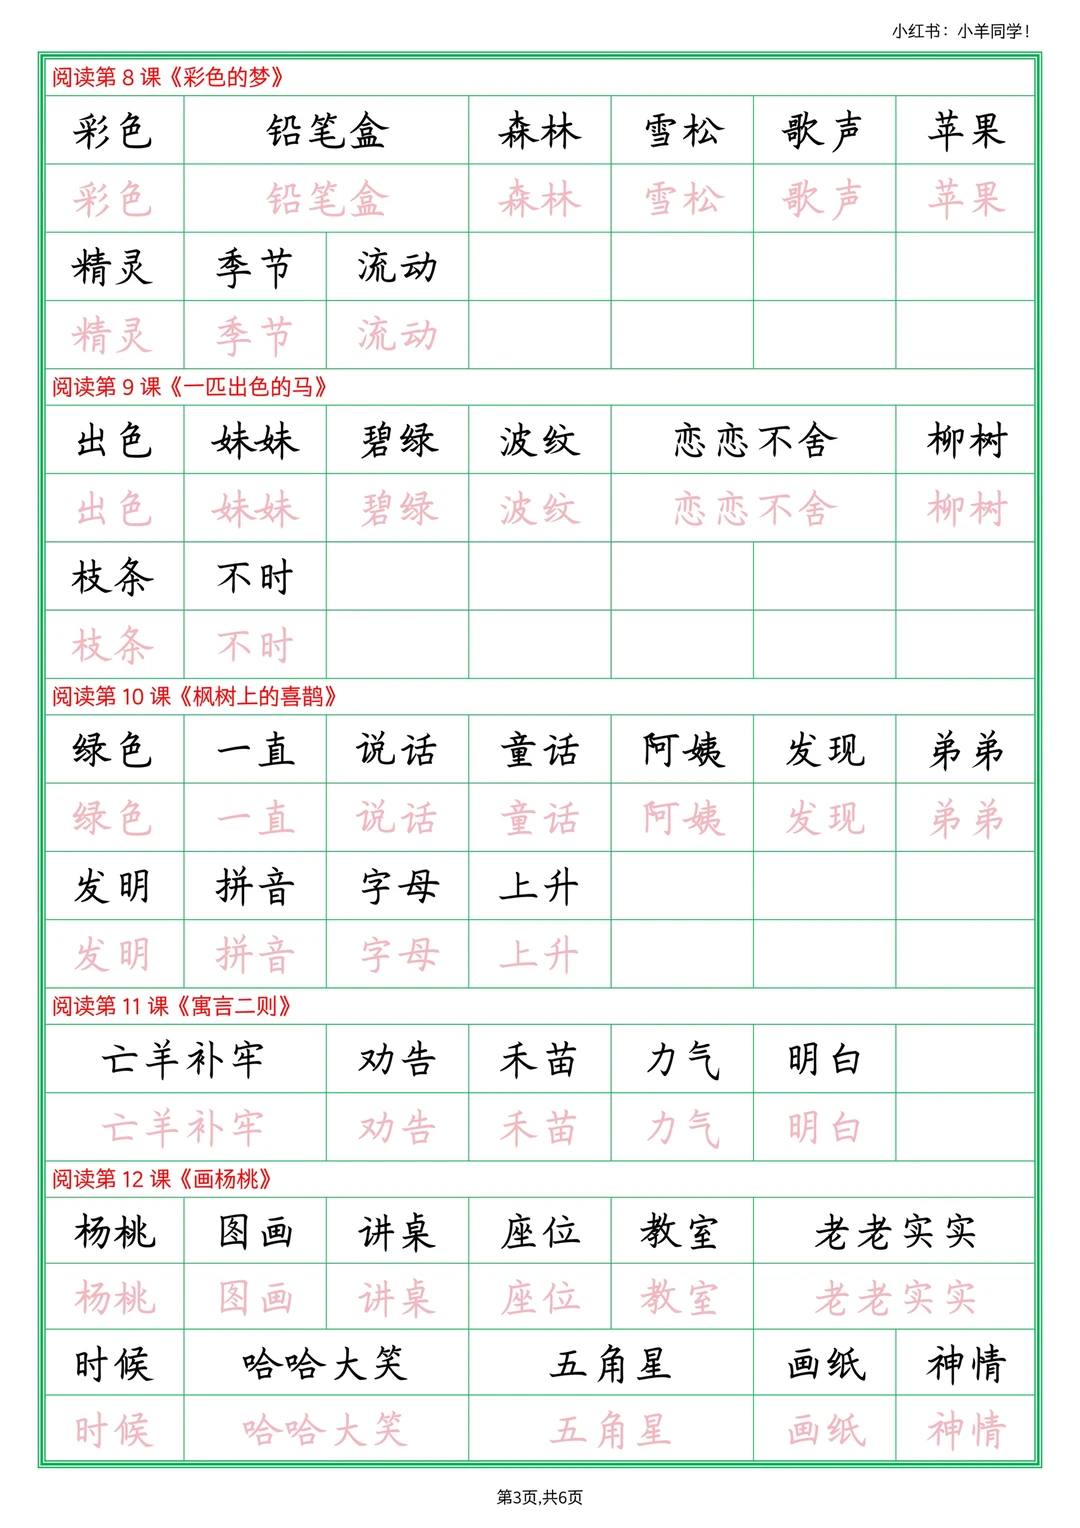 小红书：小羊同学！
阅读第 8 课《彩色的梦》
彩色 铅笔盒 森林 雪松 歌声 苹果
彩色 铅笔盒 森林 雪松 歌声 苹果
精灵 季节 流动
精灵 季节 流动
阅读第 9 课《一匹出色的马》
出色 妹妹 碧绿 波纹 恋恋不舍 柳树
出色 妹妹 碧绿 波纹 恋恋不舍 柳树
枝条 不时
枝条 不时
阅读第 10 课《枫树上的喜鹊》
绿色 一直 说话 童话 阿姨 发现 弟弟
绿色 一直 说话 童话 阿姨 发现 弟弟
发明 拼音 字母 上升
发明 拼音 字母 上升
阅读第 11 课《寓言二则》
亡羊补牢 劝告 禾苗 力气 明白
亡羊补牢 劝告 禾苗 力气 明白
阅读第 12 课《画杨桃》
杨桃 图画 讲桌 座位 教室 老老实实
杨桃 图画 讲桌 座位 教室 老老实实
时候 哈哈大笑 五角星 画纸 神情
时候 哈哈大笑 五角星 画纸 神情
第3页,共6页